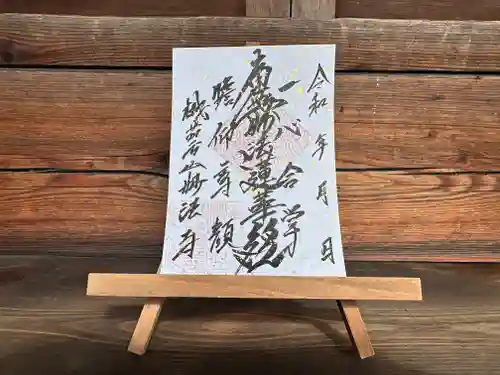 令和 年 月 日
一心合掌
南無妙法蓮華経
瞻仰尊顔
妙法寺